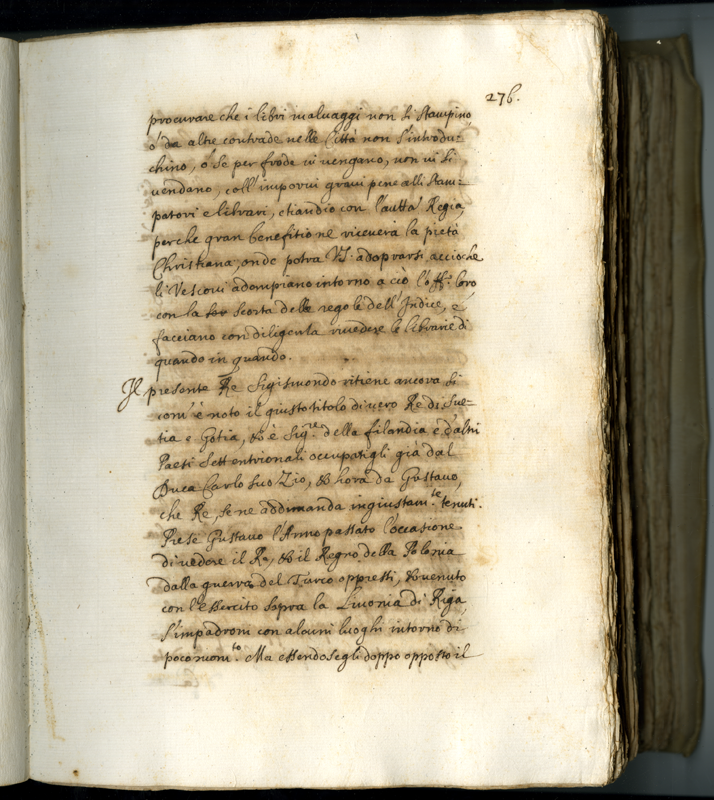 276.
procurare che i libri maluaggi non si stampino
ò da altre contrade nelle Città non s'introdu=
chino, ò se per frode ui uengano, non ui si
uendano, coll'imporui graui pene alli stam=
patori e librari, etiandio con l'autta Regia,
perche gran benefitio ne riceuerà la pietà
Christiana, onde potrà VS. adoprarsi acciò che
li Vescoui adempiano intorno a ciò l'off.o loro
con la scorta delle regole dell'Indice, e
facciano con diligenza riuedere le librarie di
quando in quando.
Il presente Re Sigismondo ritiene ancora si
com'è noto il giusto titolo di uero Re di Sue=
tia e Gotia, & è Sig.re della filandia e d'altri
Paesi Settentrionali occupatigli già dal
Duca Carlo suo Zio, & hora da Gustauo,
che Re, se ne addimanda ingiustam.te tenuti.
Prese Gustauo l'Anno passato l'occasione
di uedere il Re, & il Regno della Polonia
dalla guerra del Turco oppressi, & uenuto
con l'essercito sopra la Liuonia di Riga,
s'impadronì con alcuni luoghi intorno di
poco mom.to. Ma essendosegli doppo opposto il